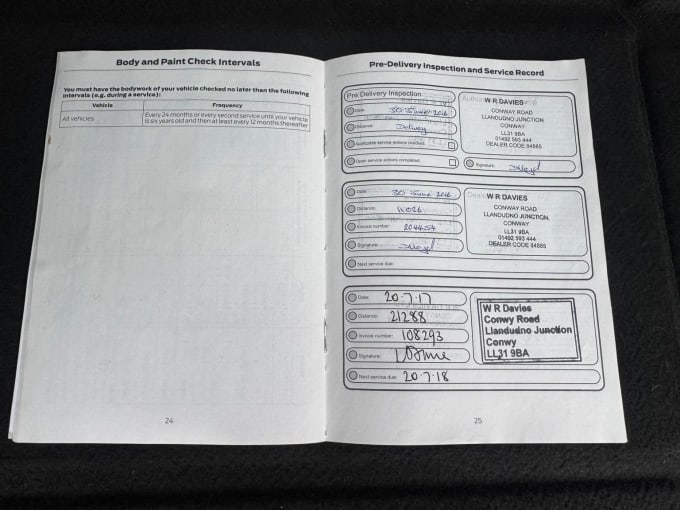 Body and Paint Check Intervals
You must have the bodywork of your vehicle checked no later than the following
intervals (e.g. during a service):
Vehicle Frequency
All vehicles Every 24 months or every second service until your vehicle
is six years old and then at least every 12 months thereafter
24
Pre-Delivery Inspection and Service Record
Pre Delivery Inspection
Date: 30 June 2016
Distance: Delivery
Applicable service actions checked
Open service actions completed
W R DAVIES
CONWAY ROAD
LLANDUDNO JUNCTION
CONWAY
LL31 9BA
01492 593 444
DEALER CODE 84685
Signature:
Date: 30 June 2016
Distance:
Invoice number: 204454
Signature:
Next service due:
W R DAVIES
CONWAY ROAD
LLANDUDNO JUNCTION
CONWAY
LL31 9BA
01492 593 444
DEALER CODE 84685
Date: 20-7-17
Distance: 21288
Invoice number: 108293
Signature:
Next service due: 20-7-18
W R Davies
Conwy Road
Llandudno Junction
Conwy
LL31 9BA
25